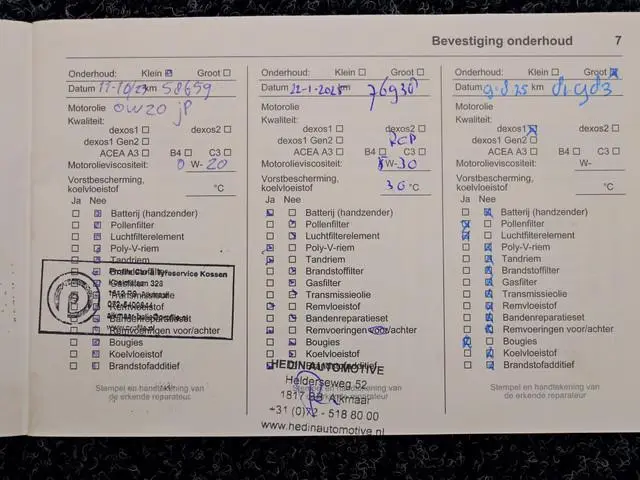 Bevestiging onderhoud 7
Onderhoud: Klein Groot
Datum 11-10/23 km 58659
Motorolie 0W20 jP
Kwaliteit:
dexos1 dexos2
dexos1 Gen2
ACEA A3 B4 C3
Motorolieviscositeit: 0 W- 20
Vorstbescherming,
koelvloeistof °C
Ja Nee
Batterij (handzender)
Pollenfilter
Luchtfilterelement
Poly-V-riem
Tandriem
Brandstoffilter
Gasfilter
Transmissieolie
Remvloeist
Bandenreparatieset
Remvoeringen voor/achter
Bougies
Koelvloeistof
Brandstofadditief
Profile Car & Tyreservice Kossen
328
www.profile.nl
Stempel en handtekening van
de erkende reparateur
Onderhoud: Klein Groot
Datum 22-1-2025 km 76930
Motorolie
Kwaliteit:
dexos1 dexos2
dexos1 Gen2
ACEA A3 B4 C3
Motorolieviscositeit: W-30
Vorstbescherming,
koelvloeistof 36 °C
Ja Nee
Batterij (handzender)
Pollenfilter
Luchtfilterelement
Poly-V-riem
Tandriem
Brandstoffilter
Gasfilter
Transmissieolie
Remvloeist
Bandenreparatieset
Remvoeringen voor/achter
Bougies
Koelvloeistof
Brandstofadditief
HEDIN AUTOMOTIVE
Helderseweg 52
1817 Alkmaar
+31 (0)72 - 518 80 00
www.hedinautomotive.nl
Stempel en handtekening van
de erkende reparateur
Onderhoud: Klein Groot
Datum 9.8.25 km
Motorolie
Kwaliteit:
dexos1 dexos2
dexos1 Gen2
ACEA A3 B4 C3
Motorolieviscositeit: W-
Vorstbescherming,
koelvloeistof °C
Ja Nee
Batterij (handzender)
Pollenfilter
Luchtfilterelement
Poly-V-riem
Tandriem
Brandstoffilter
Gasfilter
Transmissieolie
Remvloeist
Bandenreparatieset
Remvoeringen voor/achter
Bougies
Koelvloeistof
Brandstofadditief
Stempel en handtekening van
de erkende reparateur